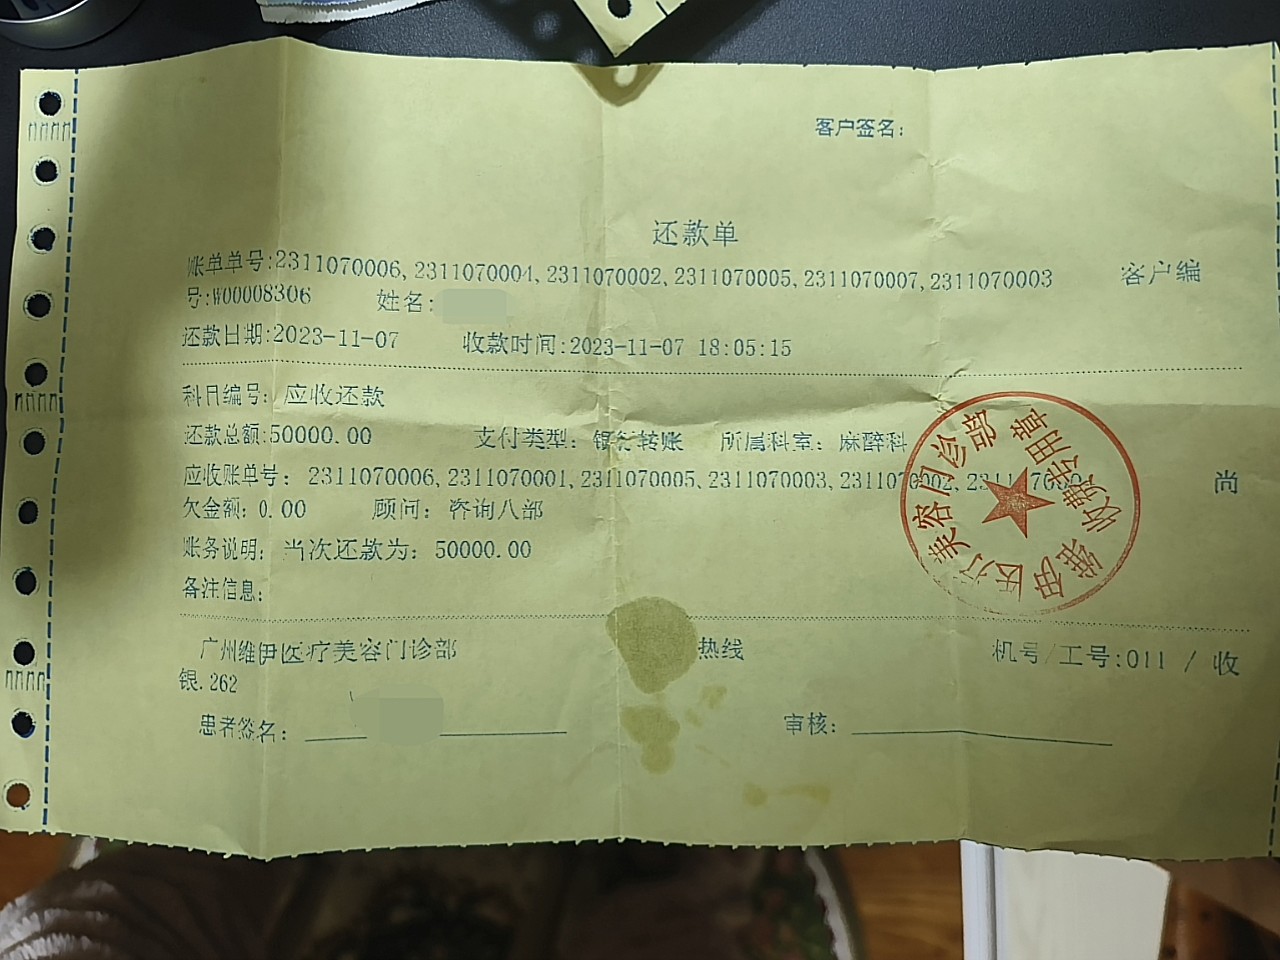 客户签名:
还款单
账单单号:2311070006,2311070004,2311070002,2311070005,2311070007,2311070003 客户编
号:W00008306 姓名:
还款日期:2023-11-07 收款时间:2023-11-07 18:05:15
科目编号: 应收还款
还款总额:50000.00 支付类型: 银行转账 所属科室: 麻醉科
应收账单号: 2311070006,2311070001,2311070005,2311070003,2311070002, 尚
欠金额: 0.00 顾问: 咨询八部
账务说明: 当次还款为: 50000.00
备注信息:
维伊医疗美容门诊部
收费专用章
广州维伊医疗美容门诊部 热线 机号/工号:011 / 收
银.262
患者签名: 审核: